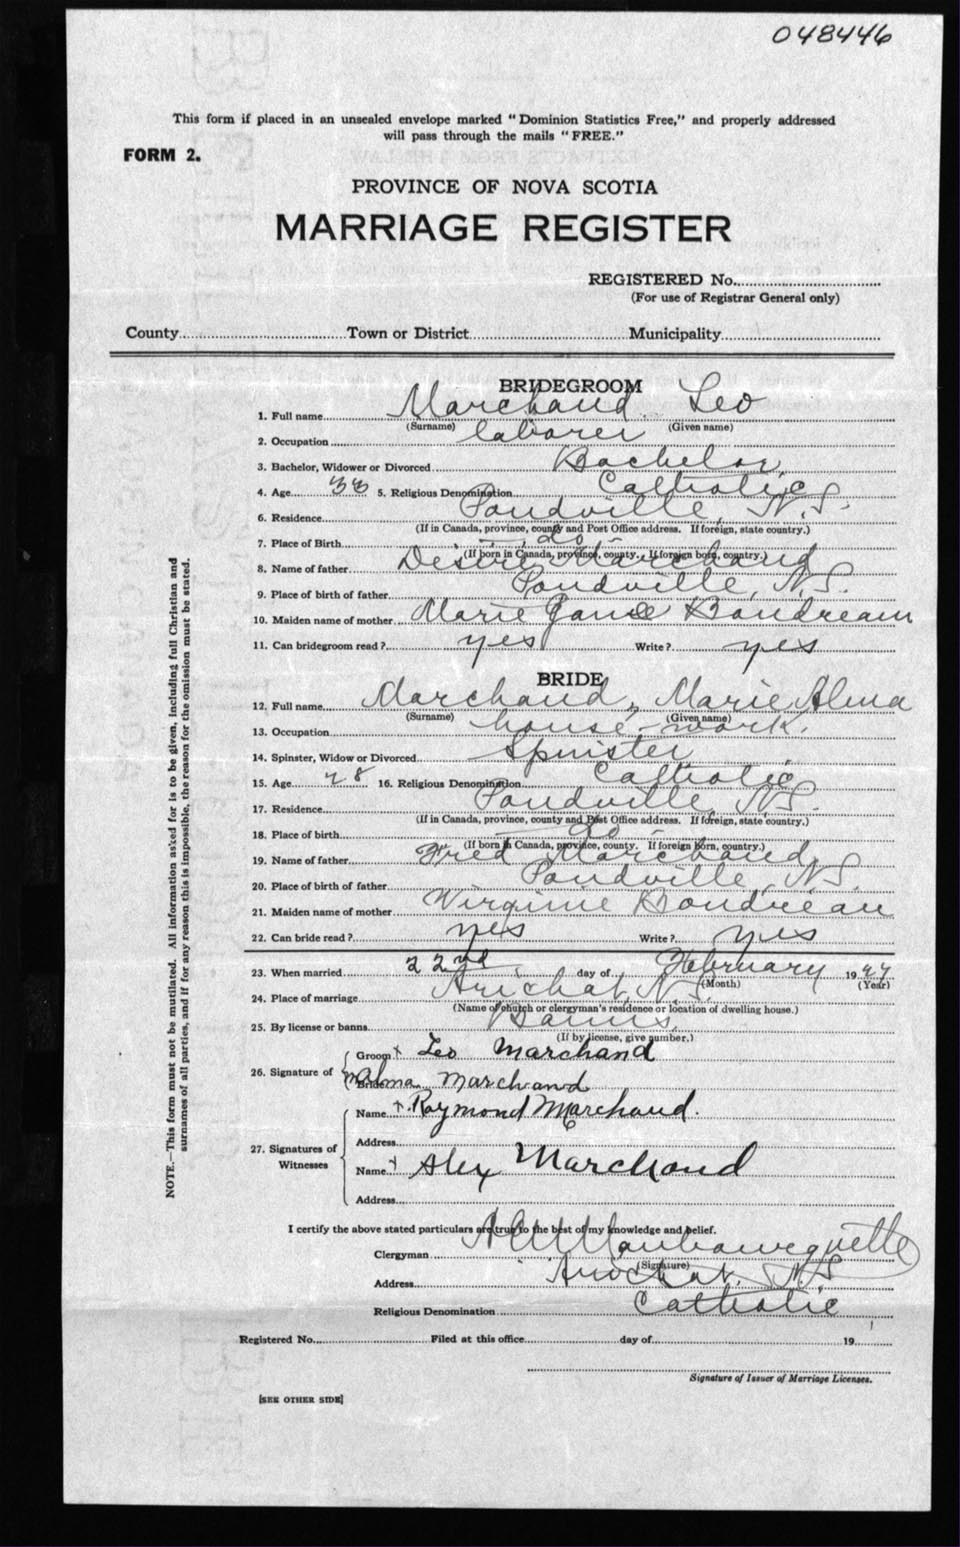 048446
This form if placed in an unsealed envelope marked "Dominion Statistics Free," and properly addressed
will pass through the mails "FREE."
FORM 2.
PROVINCE OF NOVA SCOTIA
MARRIAGE REGISTER
REGISTERED No.
(For use of Registrar General only)
County Town or District Municipality
BRIDEGROOM
1. Full name Marchand Leo
(Surname) (Given name)
2. Occupation laborer
3. Bachelor, Widower or Divorced Bachelor
4. Age 33 5. Religious Denomination Catholic
6. Residence Pondville, N.S.
(If in Canada, province, county and Post Office address. If foreign, state country.)
7. Place of Birth do
(If born in Canada, province, county. If foreign born, country.)
8. Name of father Desire Marchand
9. Place of birth of father Pondville, N.S.
10. Maiden name of mother Marie Jane Boudreau
11. Can bridegroom read? yes Write? yes
BRIDE
12. Full name Marchand, Marie Alma
(Surname) (Given name)
13. Occupation house-work.
14. Spinster, Widow or Divorced Spinster
15. Age 28 16. Religious Denomination Catholic
17. Residence Pondville, N.S.
(If in Canada, province, county and Post Office address. If foreign, state country.)
18. Place of birth do
(If born in Canada, province, county. If foreign born, country.)
19. Name of father Fred Marchand
20. Place of birth of father Pondville, N.S.
21. Maiden name of mother Virginie Boudreau
22. Can bride read? yes Write? yes
23. When married 22nd day of February 19
(Month) (Year)
24. Place of marriage Arichat, N.S.
(Name of church or clergyman's residence or location of dwelling house.)
25. By license or banns Banns
(If by license, give number.)
26. Signature of
Groom x Leo Marchand
Alma Marchand
27. Signatures of Witnesses
Name x Raymond Marchand.
Address
Name x Alex Marchand
Address
I certify the above stated particulars are true to the best of my knowledge and belief.
Clergyman
(Signature)
Address Arichat, N.S.
Religious Denomination Catholic
Registered No. Filed at this office day of 19
Signature of Issuer of Marriage Licenses.
[SEE OTHER SIDE]
NOTE.—This form must not be mutilated. All information asked for is to be given, including full Christian and
surnames of all parties, and if for any reason this is impossible, the reason for the omission must be stated.